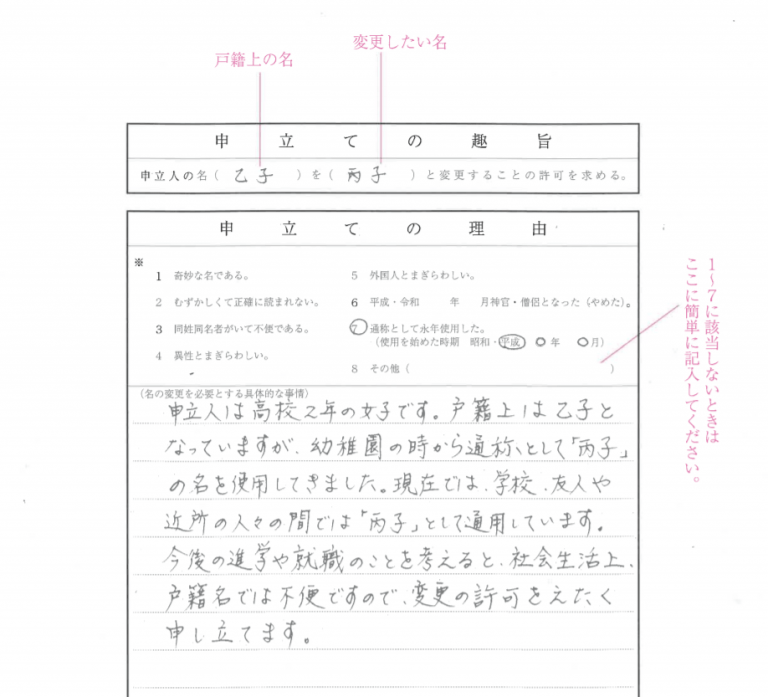 戸籍上の名
変更したい名
申立ての趣旨
申立人の名(乙子)を(丙子)と変更することの許可を求める。
申立ての理由
※
1 奇妙な名である。
2 むずかしくて正確に読まれない。
3 同姓同名者がいて不便である。
4 異性とまぎらわしい。
5 外国人とまぎらわしい。
6 平成・令和 年 月神官・僧侶となった(やめた)。
7 通称として永年使用した。
(使用を始めた時期 昭和・平成 ○年 ○月)
8 その他( )
1~7に該当しないときは
ここに簡単に記入してください。
(名の変更を必要とする具体的な事情)
申立人は高校2年の女子です。戸籍上は乙子と
なっていますが、幼稚園の時から通称として「丙子」
の名を使用してきました。現在では、学校、友人や
近所の人々の間では「丙子」として通用しています。
今後の進学や就職のことを考えると、社会生活上、
戸籍名では不便ですので、変更の許可をえたく
申し立てます。